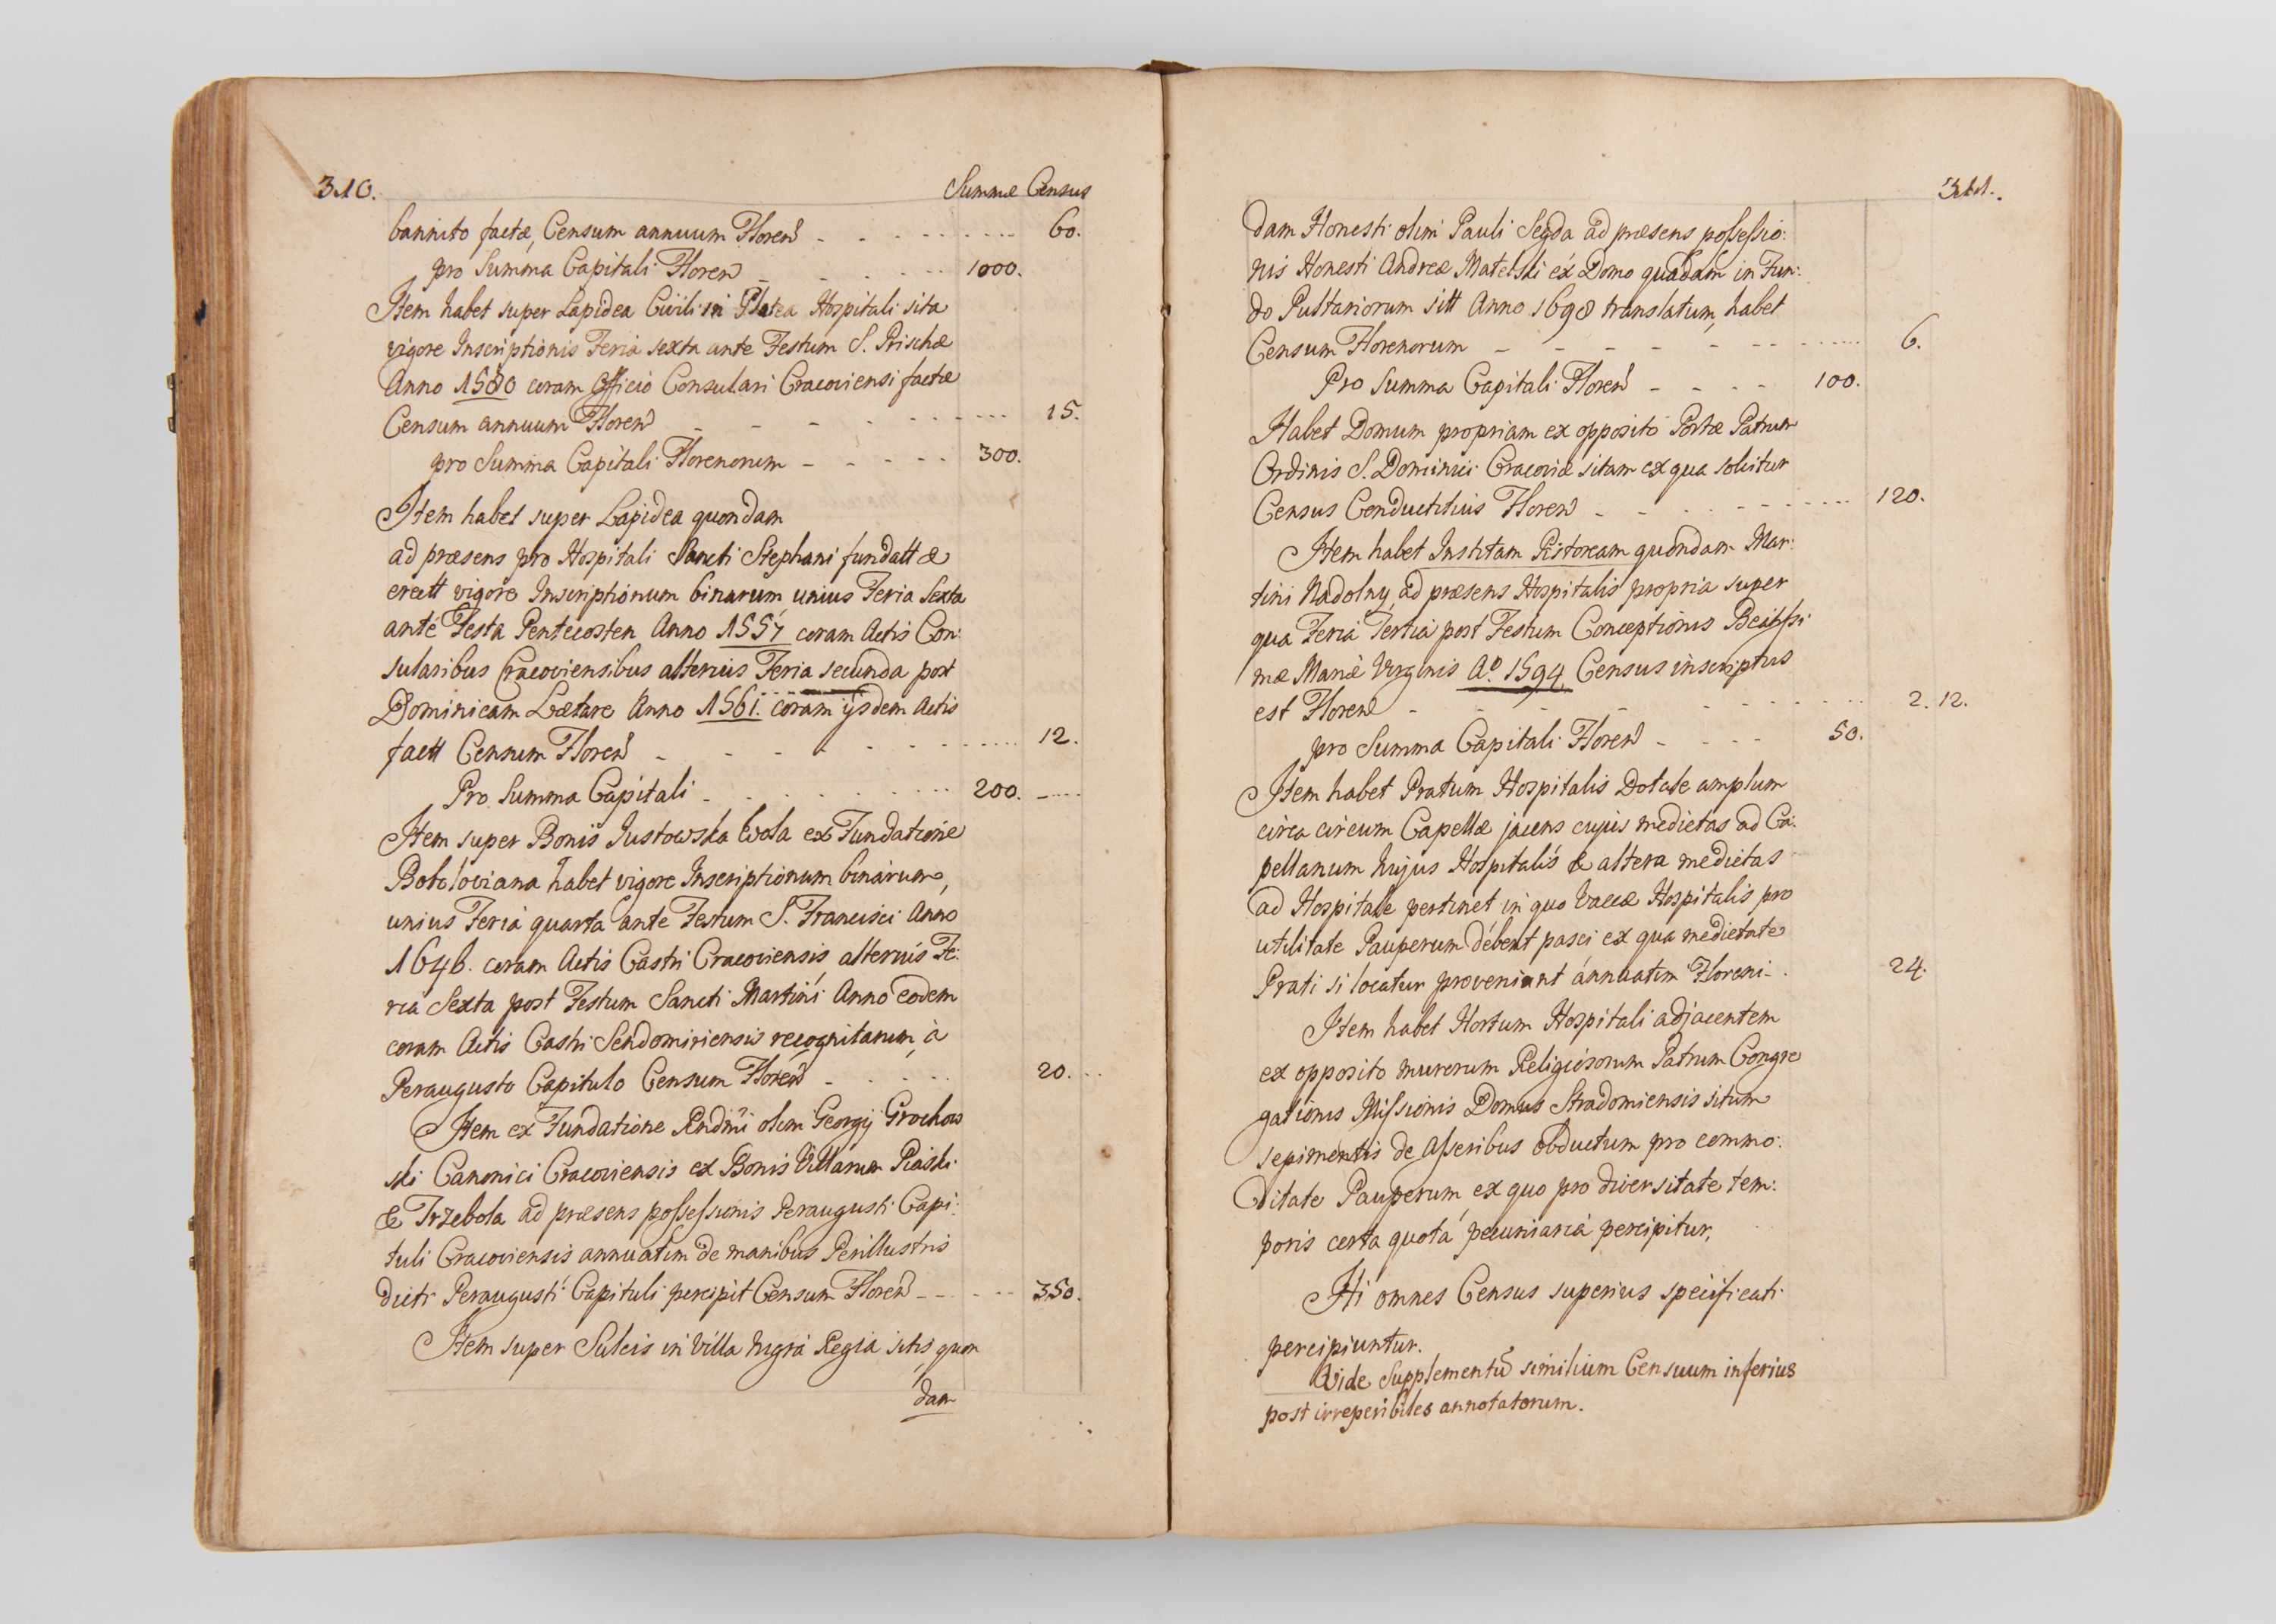 310.
Summæ Census
bannito factæ, Censum annuum Floren - - - 60.
pro Summa Capitali Floren - - - 1000.
Item habet super Lapidea Civili in Platea Hospitali sita
vigore Inscriptionis Feria sexta ante Festum S. Prischæ
Anno 1580 coram Officio Consulari Cracoviensi factæ
Censum annuum Floren - - - 15.
pro Summa Capitali Florenorum - - - 300.
Item habet super Lapidea quondam
ad præsens pro Hospitali Sancti Stephani fundatt &
erectt vigore Inscriptionum binarum, unius Feria Sexta
ante Festa Pentecosten Anno 1557 coram Actis Con:
sularibus Cracoviensibus alterius Feria secunda post
Dominicam Lætare Anno 1561. coram ijsdem Actis
factt Censum Floren - - - 12.
Pro Summa Capitali - - - 200.
Item super Bonis Justowska Wola ex Fundatione
habet vigore Inscriptionum binarum,
unius Feria quarta ante Festum S. Francisci Anno
1646. coram Actis Castri Cracoviensis alterius Fe:
ria Sexta post Festum Sancti Martini Anno eodem
coram Actis Castri Sendomiriensis recognitarum, à
Peraugusto Capitulo Censum Floren - - - 20.
Item ex Fundatione Rndmi olim Georgij Grochow
ski Canonici Cracoviensis ex Bonis Villarum Piaski
& Trzebola ad præsens possessionis Peraugusti Capi:
tuli Cracoviensis annuatim de manibus Perillustris
dicti Peraugusti Capituli percipit Censum Floren - - - 350.
Item super Sulcis in Villa Nigra Regia sitis quon
dam
311.
dam Honesti olim Pauli Segda ad præsens possessio:
nis Honesti Andreæ Matelski ex Domo quadam in Fun:
do Pustariorum sitt Anno 1698 translatum, habet
Censum Florenorum - - - 6.
Pro Summa Capitali Floren - - - 100.
Habet Domum propriam ex opposito Portæ Patrum
Ordinis S. Dominici Cracoviæ sitam ex qua solvitur
Census Conductitius Floren - - - 120.
Item habet Institam Pistoream quondam Mar:
tini Nadolny, ad præsens Hospitalis propria super
qua Feria Tertia post Festum Conceptionis Beatissi
mæ Mariæ Virginis Aº. 1594 Census inscriptus
est Floren - - - 2. 12.
pro Summa Capitali Floren - - - 50.
Item habet Pratum Hospitalis Dotale amplum
circa circum Capellæ jacens cujus medietas ad Ca:
pellanum hujus Hospitalis & altera medietas
ad Hospitale pertinet in quo Vaccæ Hospitalis pro
utilitate Pauperum debent pasci ex qua medietate
Prati si locatur proveniant annuatim Floreni - - - 24.
Item habet Hortum Hospitali adjacentem
ex opposito murorum Religiosorum Patrum Congre
gationis Missionis Domus Stradomiensis situm
sepimentis de Asseribus obductum pro commo:
ditate Pauperum, ex quo pro diversitate tem:
poris certa quota pecuniaria percipitur,
Hi omnes Census superius specificati
percipiuntur.
Vide Supplementũ similium Censuum inferius
post irreperibiles annotatorum.